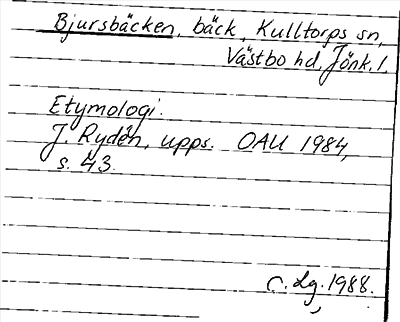 Bjursbäcken, bäck, Kulltorps sn,
Västbo hd, Jönk. l.
Etymologi.
J. Rydén, upps. OAU 1984,
s. 43.
C. Lg. 1988.